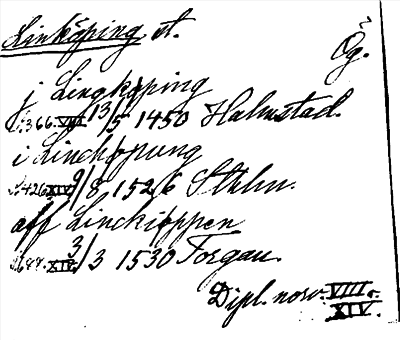 Linköping st. Ög.
j Lingköping
S. 366. VIII 13/5 1450 Halmstad.
i Linchöpung
S. 426 XIV 9/8 1526 Sthlm.
aff Lincköppen
S. 688. XIV. 3/3 1530 Torgau.
Dipl. norv. VIII o.
XIV.